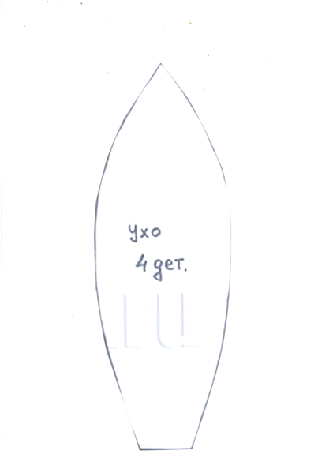 ухо
4 дет.